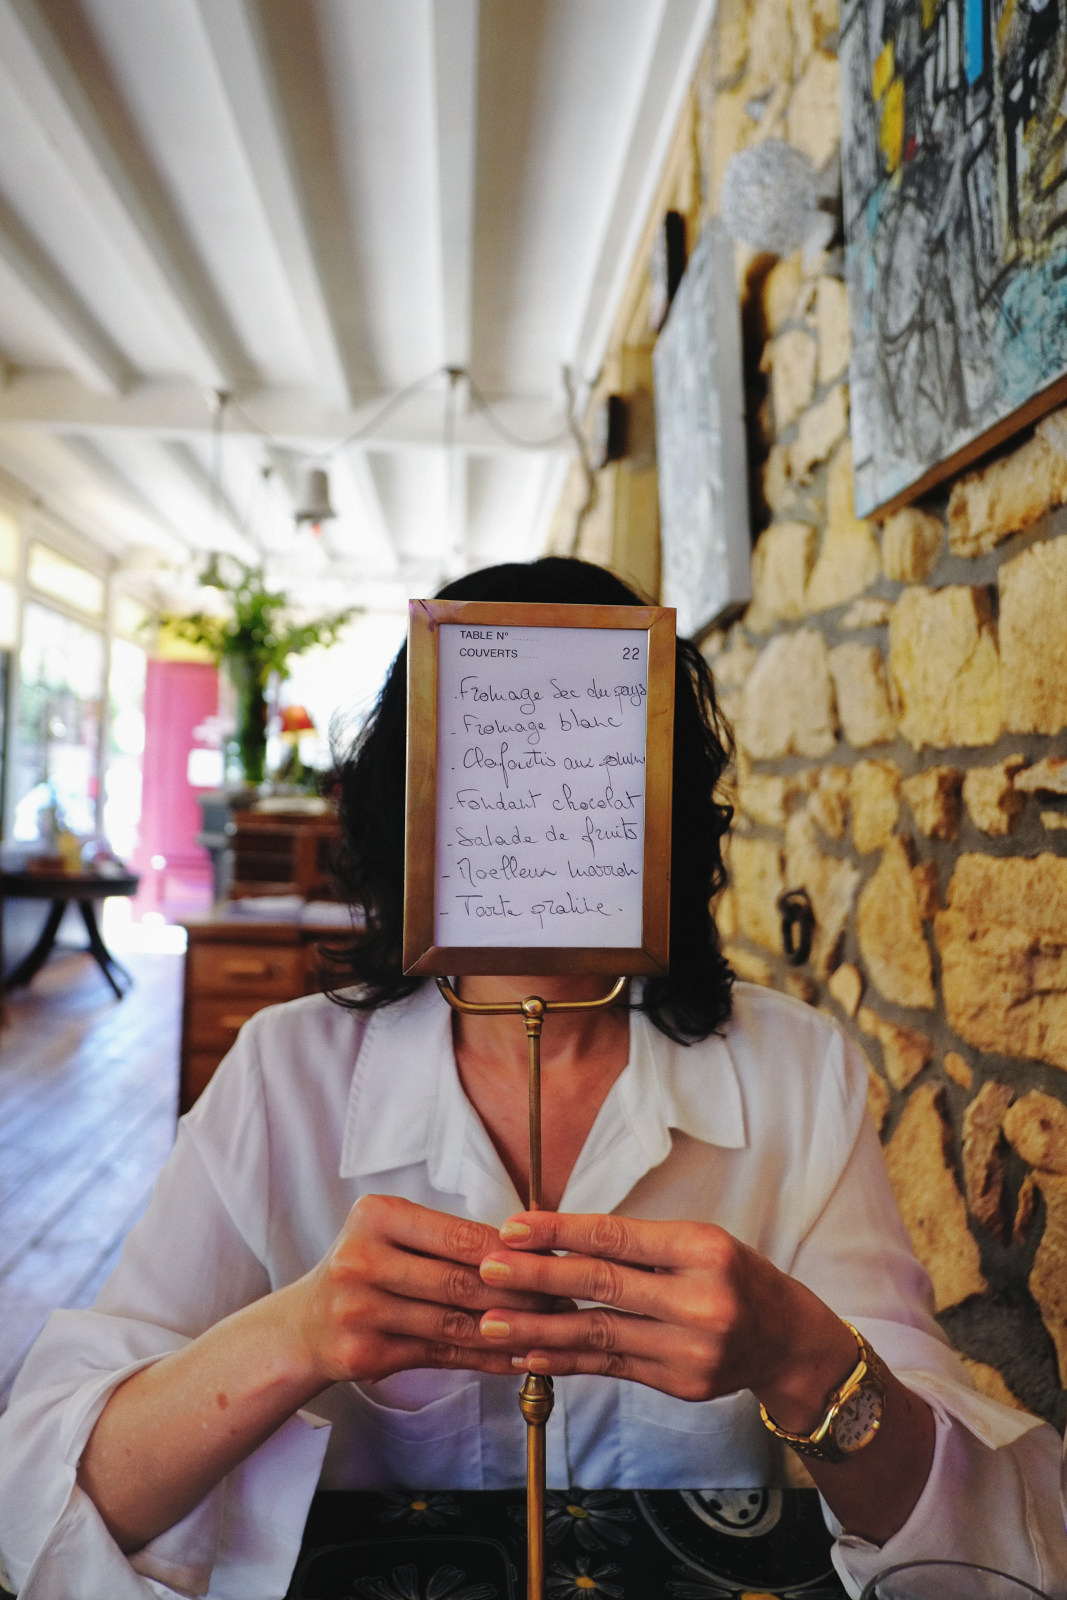 TABLE N° ........
COUVERTS ..... 22
- Fromage Sec du pays
- Fromage blanc
- Clafoutis aux
- Fondant chocolat
- Salade de fruits
- Moelleux marron
- Tarte praline.